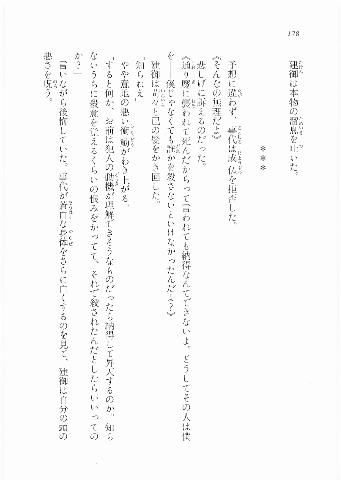 178
建御は本物の溜息を吐いた。
＊＊＊
予想に違わず、 代は成仏を拒否した。
《そんなの無理だよ》
悲しげに訴えるのだった。
《通り魔に襲われて死んだからって言われても納得なんてできないよ。どうしてその人は僕
を――僕じゃなくても誰かを殺さないといけなかったんだよ？》
建御は 々と己の髪をかき回した。
「知らねえ」
やや意地の悪い衝動がわき上がる。
「すると何か、お前は犯人の動機が理解できそうなものだったら納得して昇天するのか。知ら
ないうちに殺意を覚えるくらいの恨みをかってて、それで殺されたんだとしたらいいっての
か？」
言いながら後悔していた。 代が蒼白な身体をさらに白くするのを見て、建御は自分の頭の
悪さを呪う。